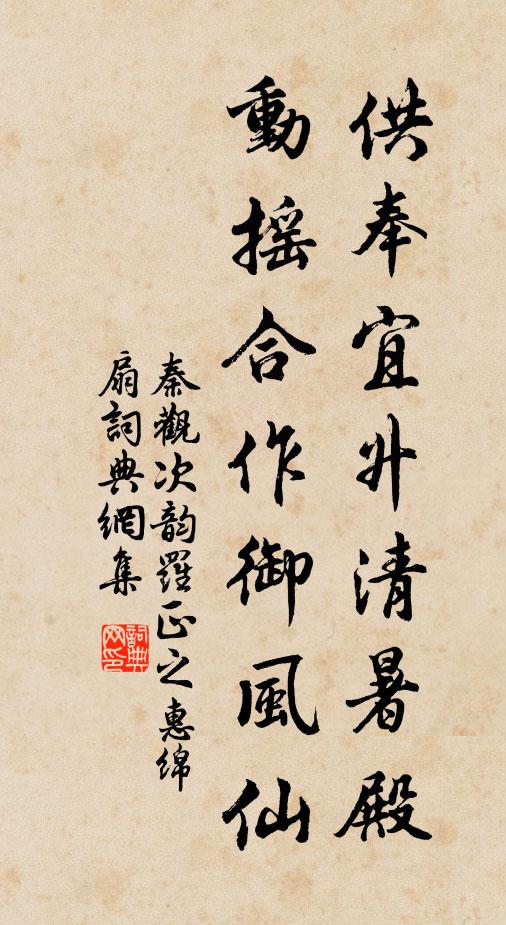 供奉宜升清暑殿
動搖合作御風仙
秦觀次韵羅正之惠綿
扇詞典網集
詞典网印